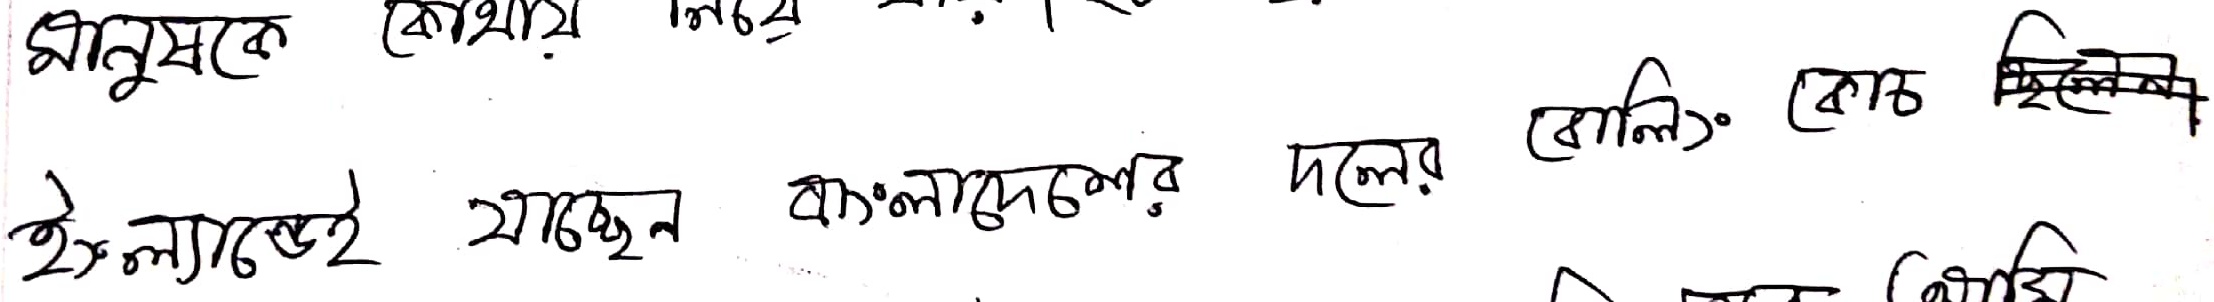 মানুষকে কোথায় নিয়ে
ইংল্যান্ডেই যাচ্ছেন বাংলাদেশের দলের বোলিং কোচ